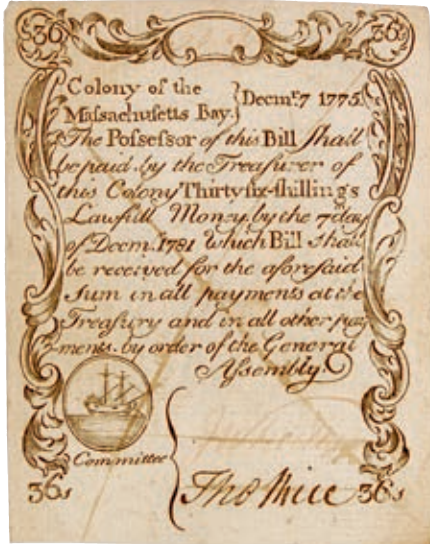 36 36
Colony of the } Decmr. 7 1775.
Maſsachusetts Bay.
The Poſseſsor of this Bill ſhall
be paid by the Treaſurer of
this Colony Thirty ſix-ſhillings
Lawfull Money by the 7 day
of Decmr. 1781 which Bill ſhall
be received for the aforeſaid
Sum in all payments at the
Treaſury and in all other pay
ments. by order of the General
Aſsembly.
Committee
36s 36s